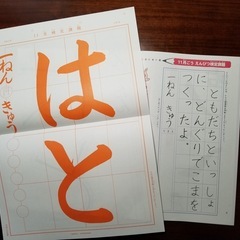 はと
一ねん きゅう
11月ごう えんぴつ規定課題
ともだちといっしょ
に、どんぐりでこまを
つくったよ。
一ねん きゅう